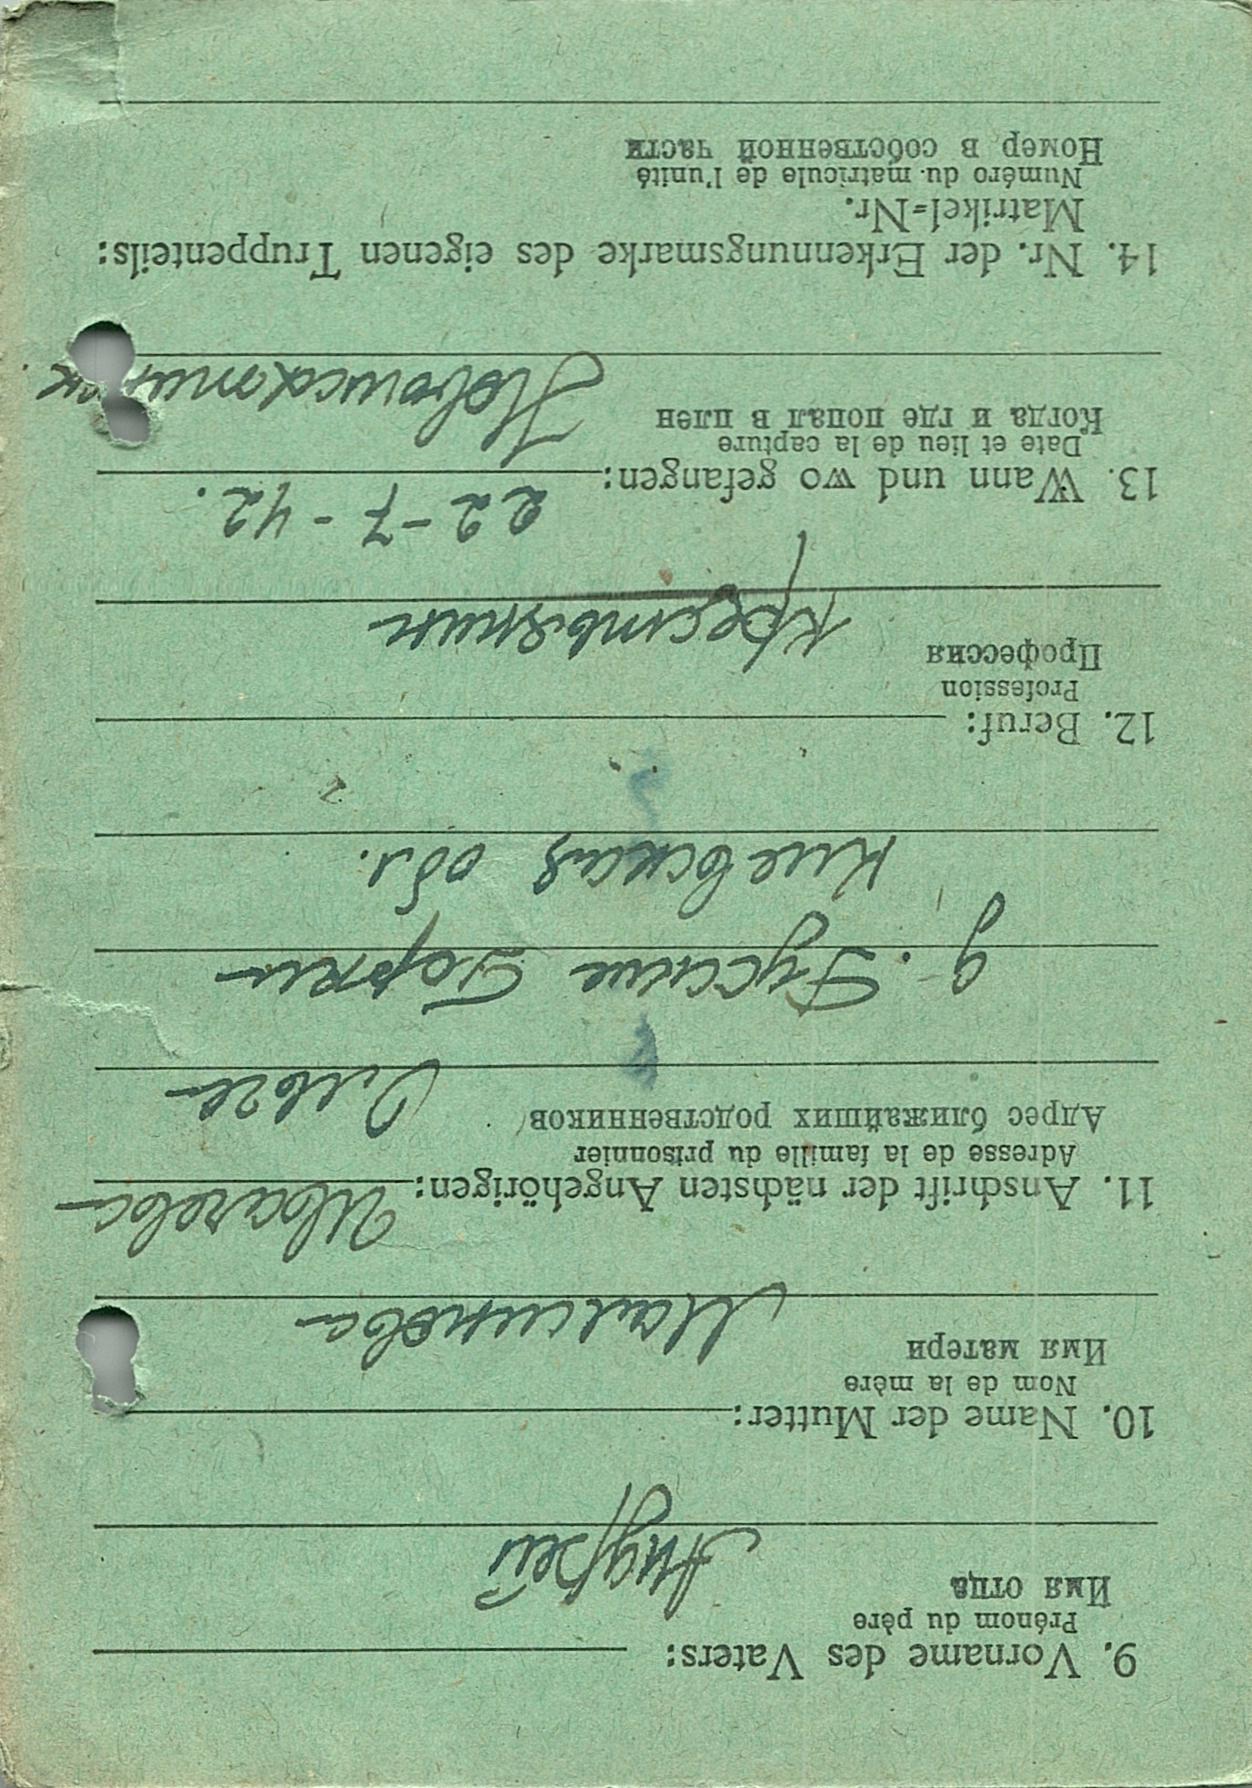 9. Vorname des Vaters:
Prénom du père
Имя отца
Андрей
10. Name der Mutter:
Nom de la mère
Имя матери
Максимова
11. Anschrift der nächsten Angehörigen:
Adresse de la famille du prisonnier
Адрес ближайших родственников
Ивахова
Ольга
д. Русские Горки
Киевская обл.
12. Beruf:
Profession
Профессия
Крестьянин
13. Wann und wo gefangen:
Date et lieu de la capture
Когда и где попал в плен
22-7-42.
Новошахтинск
14. Nr. der Erkennungsmarke des eigenen Truppenteils:
Matrikel=Nr.
Numéro du matricule de l'unité
Номер в собственной части